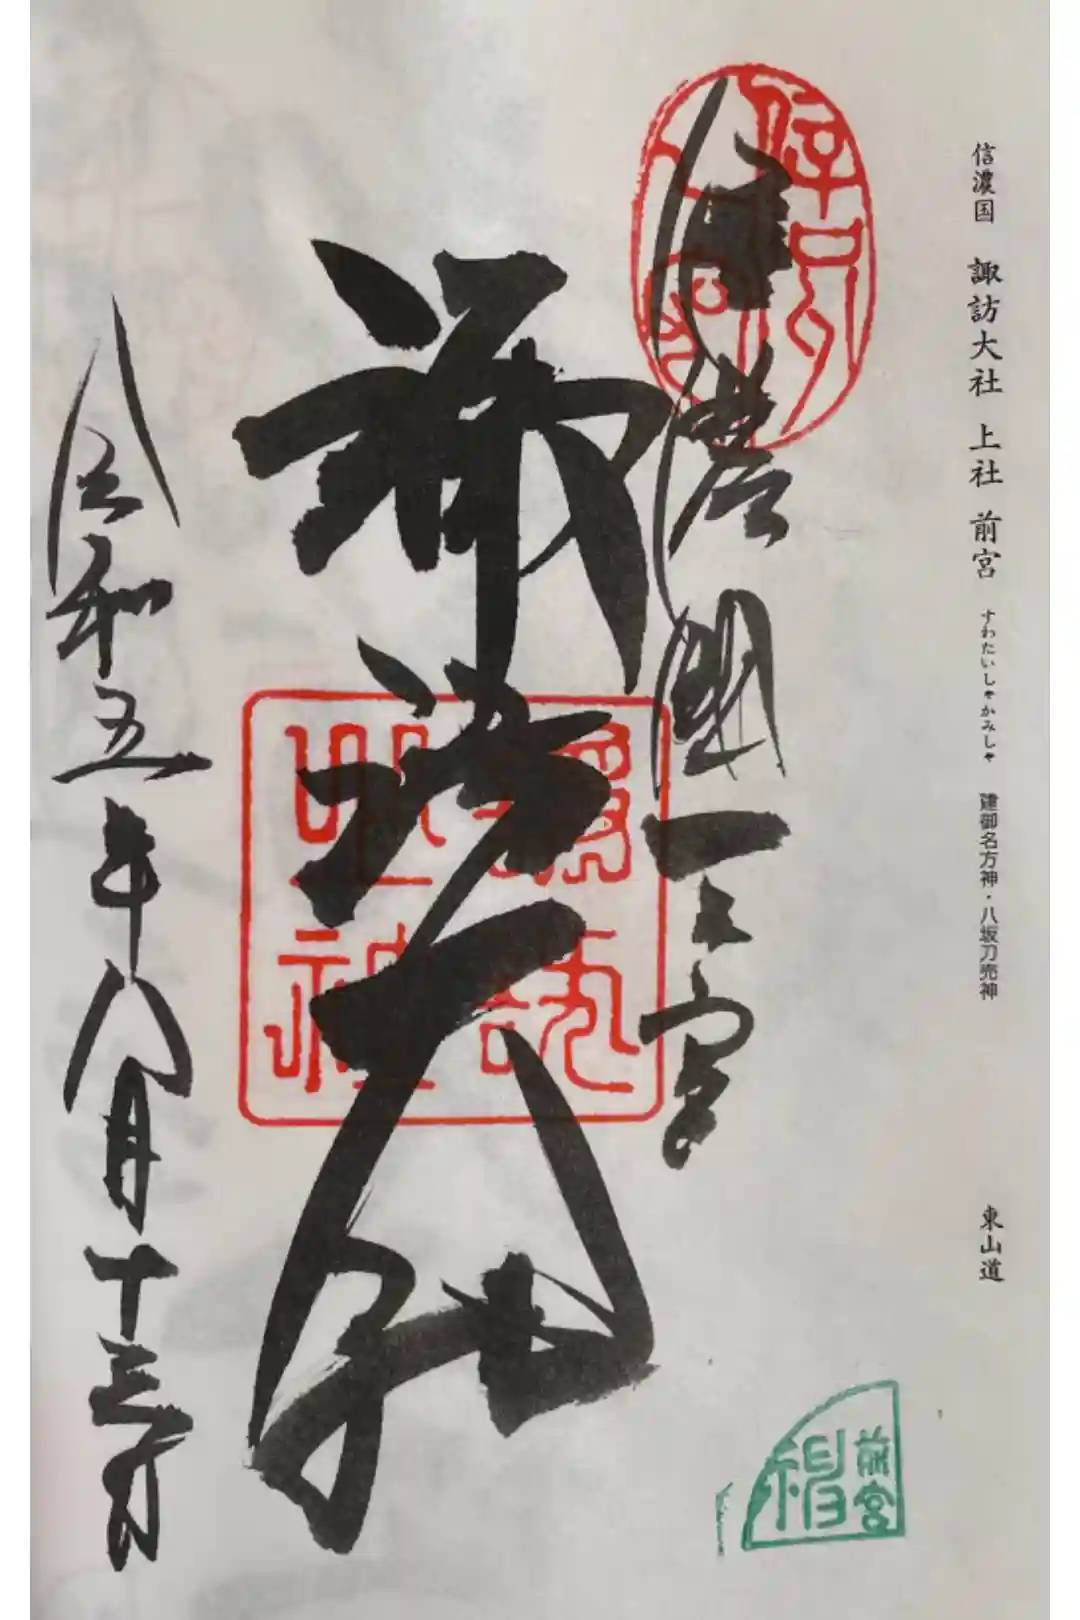 信濃国 諏訪大社 上社 前宮 すわたいしゃかみしゃ 建御名方神・八坂刀売神 東山道
信濃國一之宮
諏訪大社
令和五年八月十三日
諏訪
大社
前宮